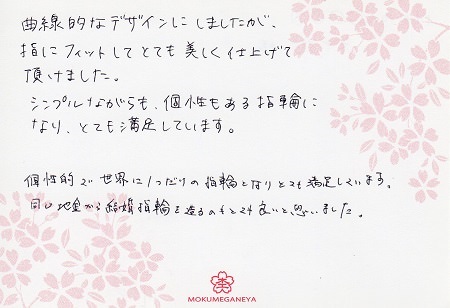 曲線的なデザインにしましたが、
指にフィットしてとても美しく仕上げて
頂けました。
シンプルながらも、個性もある指輪に
なり、とても満足しています。
個性的で世界に1つだけの指輪となりとても満足しています。
同じ地金から結婚指輪を造るのもとても良いと思いました。
MOKUMEGANEYA